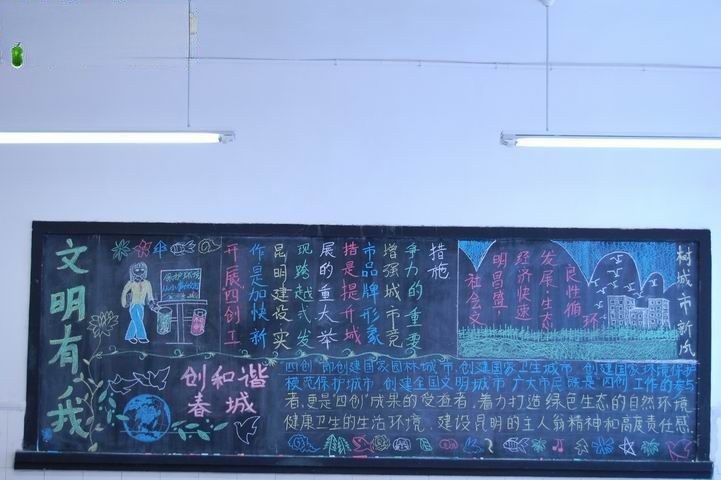 文明有我
保护环境
从小事做起
开展四创工
作是加快新
昆明建设,实
现跨越式发
展的重大举
措是提升城
市品牌形象
增强城市竞
争力的重要
措施
社会文
明昌盛!
经济快速
发展、生态
良性循环
树城市新风
创和谐
春城
四创"即创建国家园林城市,创建国家卫生城市,创建国家环境保护
模范保护城市,创建全国文明城市,广大市民既是"四创"工作的参与
者,更是"四创"成果的受益者,着力打造绿色生态的自然环境
健康卫生的生活环境,建设昆明的主人翁精神和高度责任感